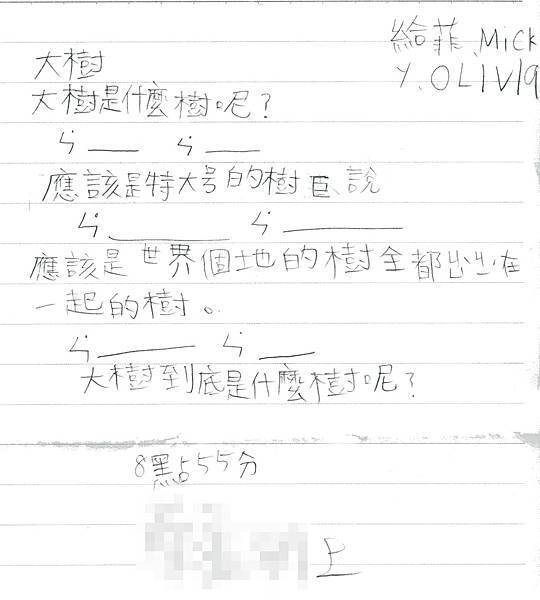 給菲、Mick
y、OLIVIa
大樹
大樹是什麼樹呢?
ㄣˊ ___ ㄣˊ ___
應該是特大号的樹 說
ㄣˊ ___ ㄣˊ ___
應該是世界個地的樹全都 在
一起的樹。
ㄣˊ ___ ㄣˊ ___
大樹到底是什麼樹呢?
8點55分
上